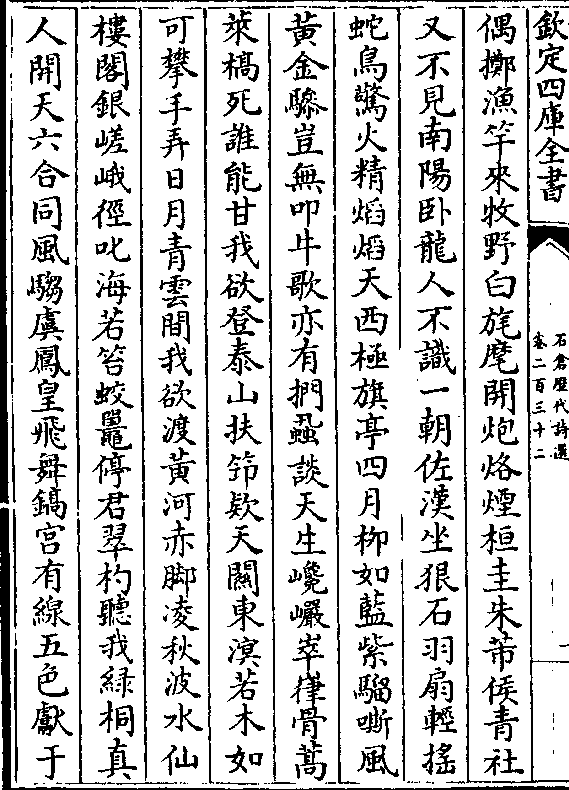 欽定四庫全書
石倉歷代詩選
卷二百三十二
偶擲漁竿來牧野白旄麾開炮烙煙桓圭朱芾侯青社
又不見南陽臥龍人不識一朝佐漢坐狠石羽扇輕搖
蛇鳥驚火精熖熖天西極旗亭四月柳如藍紫騮嘶風
黃金驂豈無叩牛歌亦有捫蝨談天生巉巖崒嵂骨蒿
萊槁死誰能甘我欲登泰山扶笻欵天闕東溟若木如
可攀手弄日月青雲間我欲渡黃河赤脚凌秋波水仙
樓閣銀嵯峨徑叱海若笞蛟鼉停君翠杓聽我緑桐真
人開天六合同風騶虞鳳皇飛舞鎬宮有線五色獻于